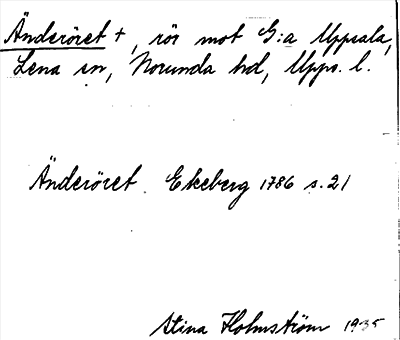 Änderöret +, rör mot G:a Uppsala,
Lena sn, Norunda hd, Upps. l.
Änderöret. Ekeberg 1786 s. 21
Stina Holmström 1935